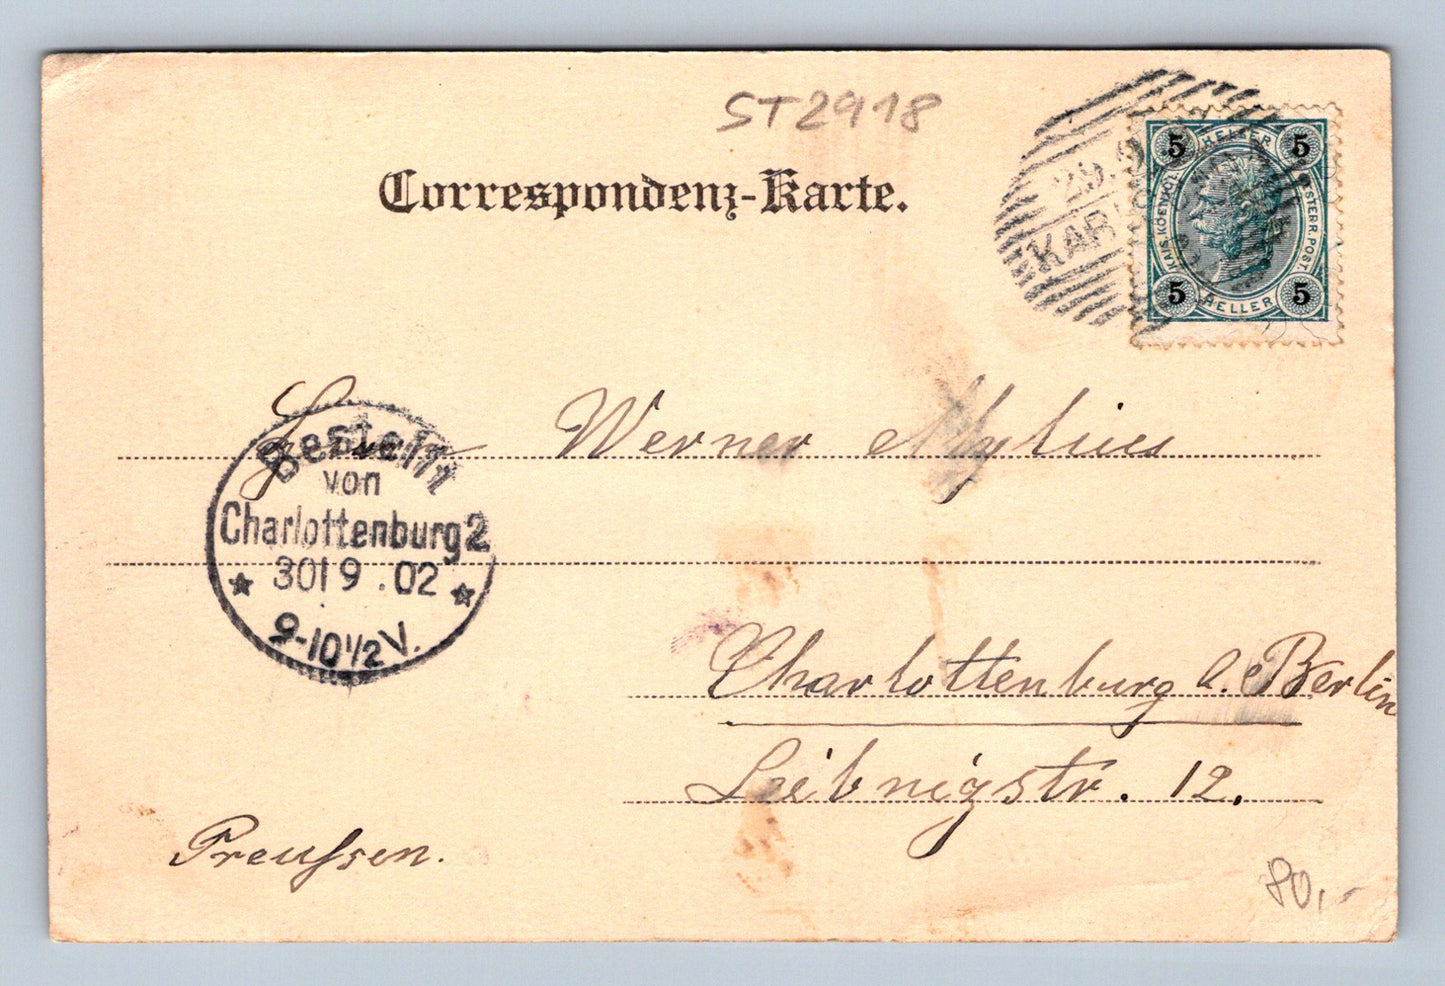 ST2918
Correspondenz-Karte.
29.9
KARL
5 HELLER 5
KAIS. KOENIGL. OESTERR. POST.
5 HELLER 5
Herrn Werner Mylius
Bestellt
von
Charlottenburg 2
30/9.02
9-10½V.
Charlottenburg b. Berlin
Leibnigstr. 12.
Preussen.
80,-